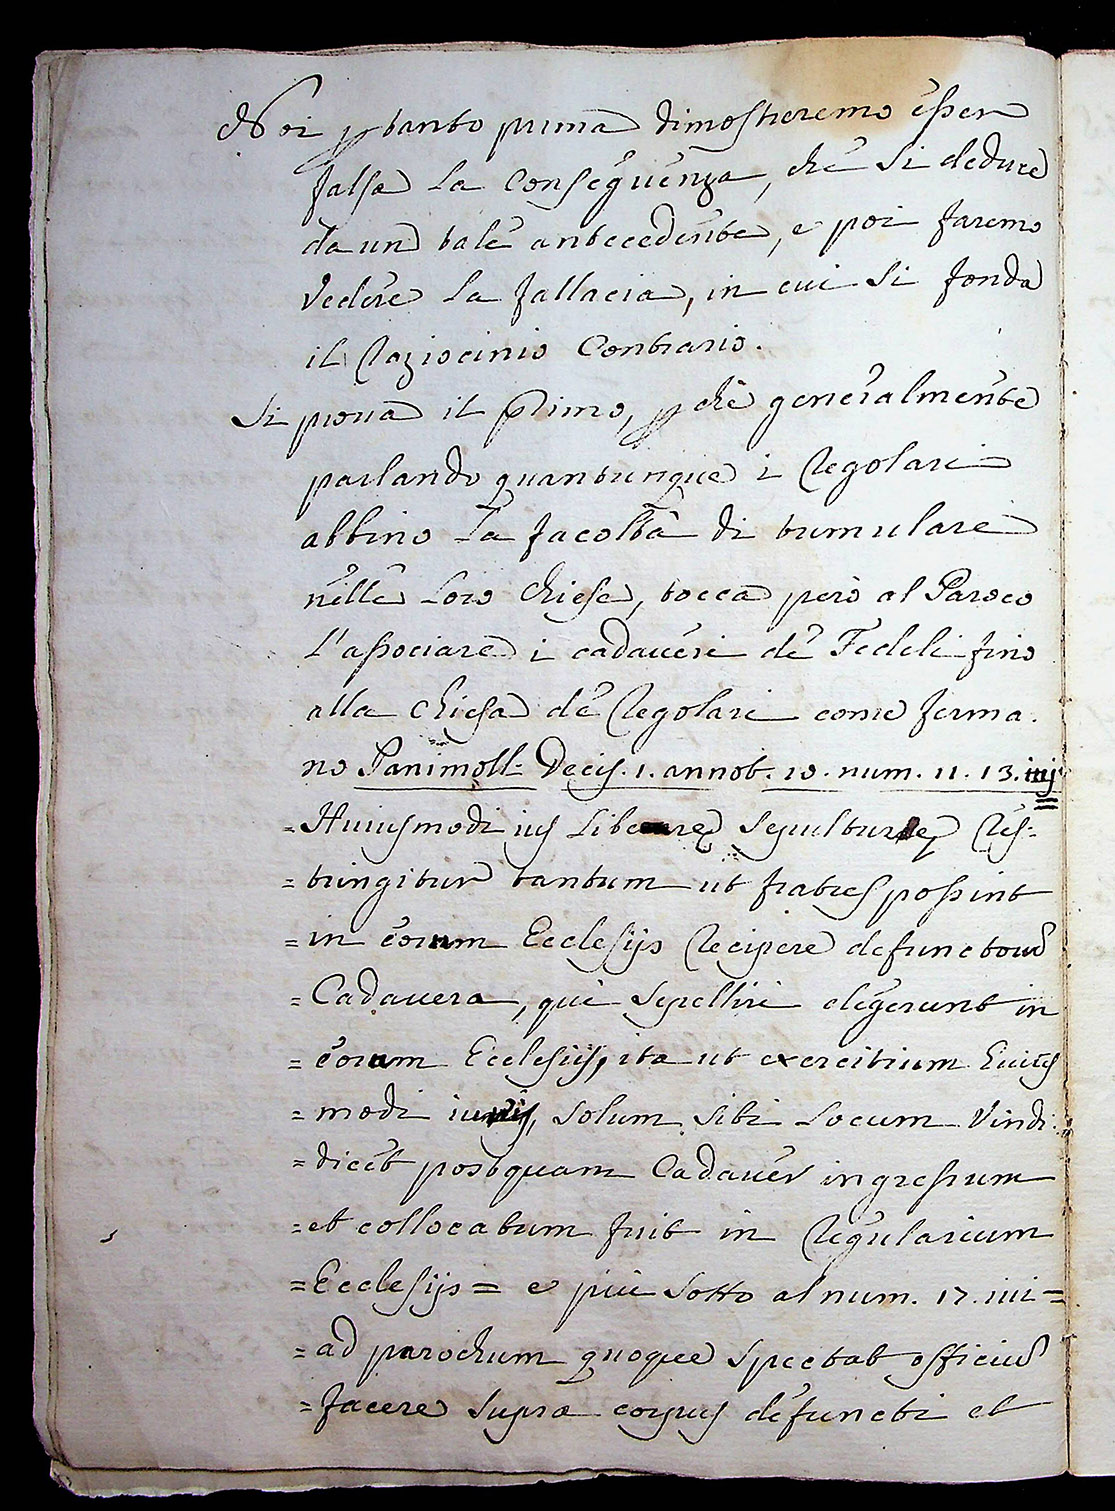 Noi ꝑ tanto prima dimostreremo esser
falsa la conseguenza, che si deduce
da un tale antecedente, e poi faremo
vedere la fallacia, in cui si fonda
il Raziocinio Contrario.
Si proua il Primo, ꝑ che generalmente
parlando quantunque i Regolari
abbino la facoltà di tumulare
nelle loro Chiese, tocca però al Paroco
l'associare i cadaueri de Fedeli fino
alla Chiesa de Regolari come ferma=
no Panimoll: Decis. 1. annot. 10. num. 11. 13. iuj
=Huiusmodi ius liberae sepulturae Res=
=tringitur tantum ut fratres possint
=in eorum Ecclesijs Recipere defunctorũ
=Cadauera, qui sepelliri elegerunt in
=eorum Ecclesijs, ita ut exercitium huius
=modi iuris, solum sibi locum Vindi:
=dicet postquam Cadauer ingressum
=et collocatum fuit in Regularium
=Ecclesijs= e più sotto al num. 17. iui=
=ad parochum quoque spectat officiũ
=facere supra corpus defuncti et